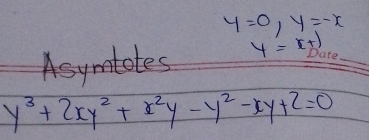 y=0, y=-x
y = x+1
Date
Asymtotes
y³ + 2xy² + x²y - y² - xy + 2 = 0